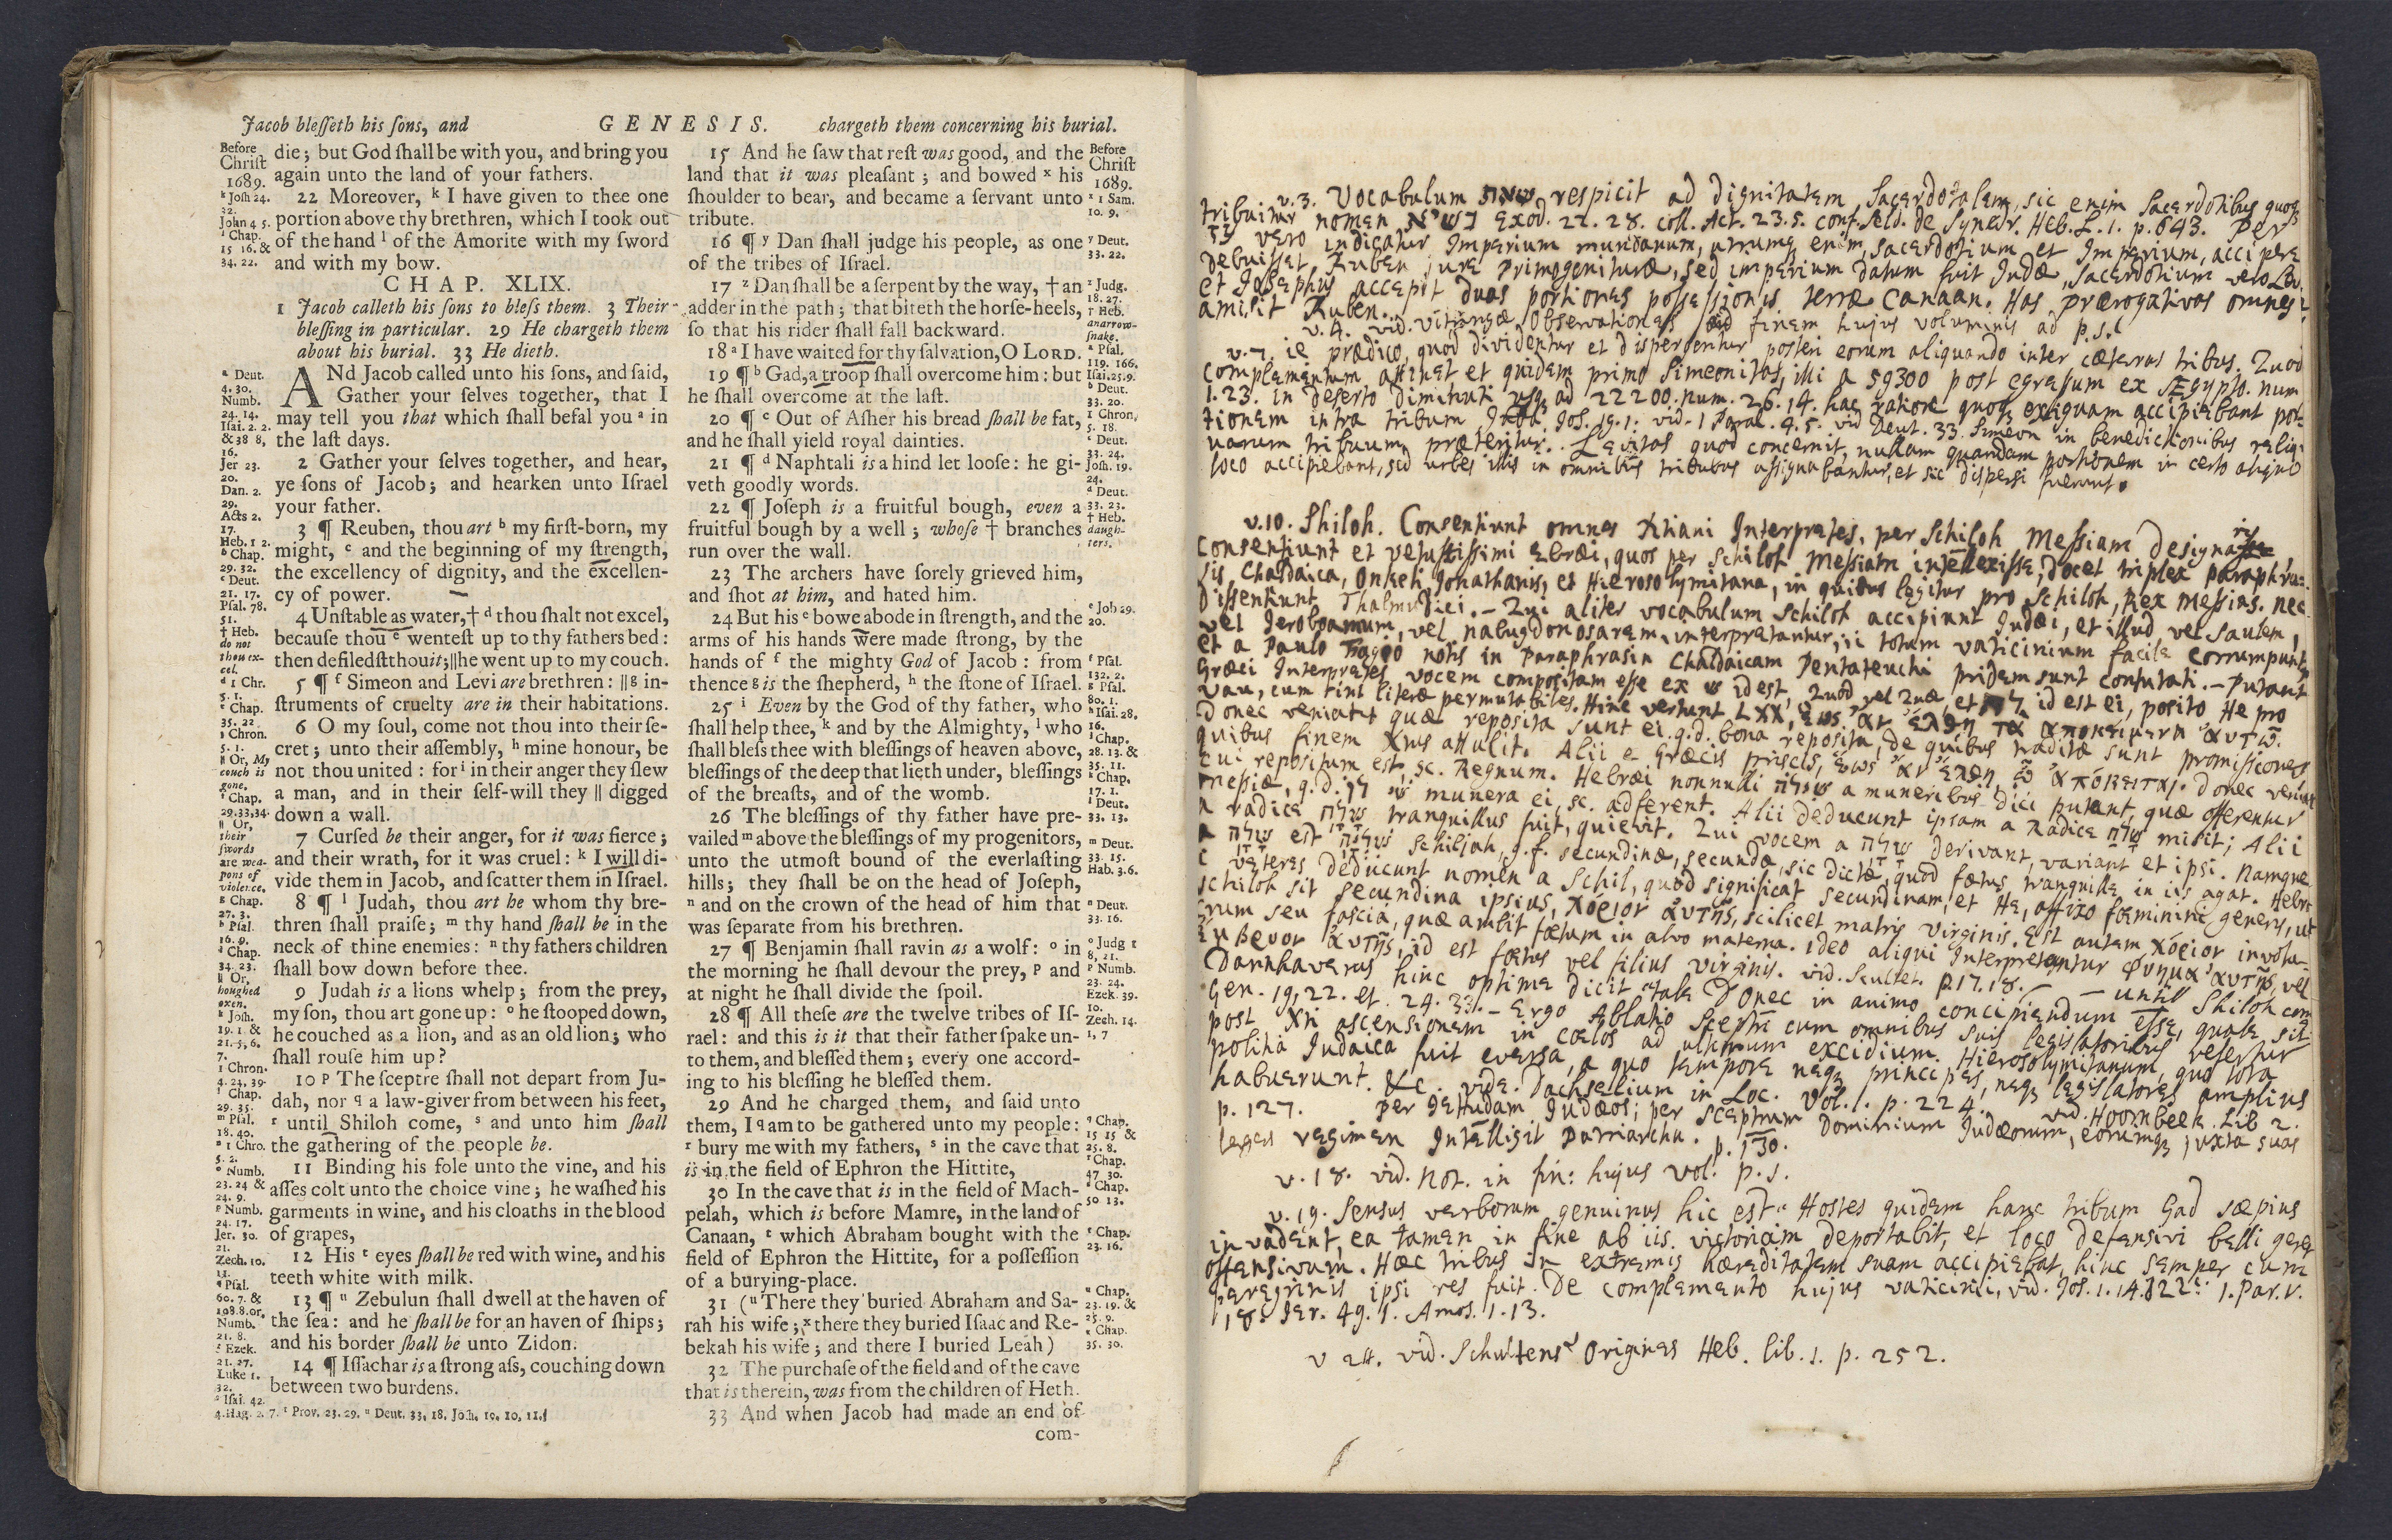 Jacob bleſſeth his ſons, and GENESIS. chargeth them concerning his burial.
Before
Chriſt
1689.
k Joſh 24.
32.
John 4 5.
l Chap.
15 16. &
34. 22.
die; but God ſhall be with you, and bring you
again unto the land of your fathers.
22 Moreover, k I have given to thee one
portion above thy brethren, which I took out
of the hand l of the Amorite with my ſword
and with my bow.
CHAP. XLIX.
1 Jacob calleth his ſons to bleſs them. 3 Their
bleſſing in particular. 29 He chargeth them
about his burial. 33 He dieth.
a Deut.
4. 30.
Numb.
24. 14.
Iſai. 2. 2.
& 38 8,
16.
Jer 23.
20.
Dan. 2.
29.
Acts 2.
17.
Heb. 1 2.
b Chap.
29. 32.
c Deut.
21. 17.
Pſal. 78.
51.
† Heb.
do not
thou ex-
cel.
d 1 Chr.
5. 1.
e Chap.
35. 22
1 Chron.
5. 1.
|| Or, My
couch is
gone.
f Chap.
29.33,34.
|| Or,
their
ſwords
are wea-
pons of
violence.
g Chap.
27. 3.
h Pſal.
16. 9.
i Chap.
34. 23.
|| Or,
houghed
oxen.
k Joſh.
19. 1. &
21. 5, 6,
7.
1 Chron.
4. 24, 39.
l Chap.
29. 35.
m Pſal.
18. 40.
n 1 Chro.
5. 2.
o Numb.
23. 24 &
24. 9.
p Numb.
24. 17.
Jer. 30.
21.
Zech. 10.
11.
q Pſal.
60. 7. &
108.8.or,
Numb.
21. 8.
r Ezek.
21. 27.
Luke 1.
32.
s Iſai. 42.
4. Hag. 2. 7. t Prov. 23. 29. u Deut. 33. 18. Joſh. 19. 10, 11.
ANd Jacob called unto his ſons, and ſaid,
Gather your ſelves together, that I
may tell you that which ſhall befal you a in
the laſt days.
2 Gather your ſelves together, and hear,
ye ſons of Jacob; and hearken unto Iſrael
your father.
3 ¶ Reuben, thou art b my firſt-born, my
might, c and the beginning of my ſtrength,
the excellency of dignity, and the excellen-
cy of power.
4 Unſtable as water, † d thou ſhalt not excel,
becauſe thou e wenteſt up to thy fathers bed:
then defiledſt thou it; || he went up to my couch.
5 ¶ f Simeon and Levi are brethren: || g in-
ſtruments of cruelty are in their habitations.
6 O my ſoul, come not thou into their ſe-
cret; unto their aſſembly, h mine honour, be
not thou united: for i in their anger they ſlew
a man, and in their ſelf-will they || digged
down a wall.
7 Curſed be their anger, for it was fierce;
and their wrath, for it was cruel: k I will di-
vide them in Jacob, and ſcatter them in Iſrael.
8 ¶ l Judah, thou art he whom thy bre-
thren ſhall praiſe; m thy hand ſhall be in the
neck of thine enemies: n thy fathers children
ſhall bow down before thee.
9 Judah is a lions whelp; from the prey,
my ſon, thou art gone up: o he ſtooped down,
he couched as a lion, and as an old lion; who
ſhall rouſe him up?
10 p The ſceptre ſhall not depart from Ju-
dah, nor q a law-giver from between his feet,
r until Shiloh come, s and unto him ſhall
the gathering of the people be.
11 Binding his fole unto the vine, and his
aſſes colt unto the choice vine; he waſhed his
garments in wine, and his cloaths in the blood
of grapes,
12 His t eyes ſhall be red with wine, and his
teeth white with milk.
13 ¶ u Zebulun ſhall dwell at the haven of
the ſea: and he ſhall be for an haven of ſhips;
and his border ſhall be unto Zidon.
14 ¶ Iſſachar is a ſtrong aſs, couching down
between two burdens.
15 And he ſaw that reſt was good, and the
land that it was pleaſant; and bowed x his
ſhoulder to bear, and became a ſervant unto
tribute.
16 ¶ y Dan ſhall judge his people, as one
of the tribes of Iſrael.
17 z Dan ſhall be a ſerpent by the way, † an
adder in the path; that biteth the horſe-heels,
ſo that his rider ſhall fall backward.
18 a I have waited for thy ſalvation, O LORD.
19 ¶ b Gad, a troop ſhall overcome him: but
he ſhall overcome at the laſt.
20 ¶ c Out of Aſher his bread ſhall be fat,
and he ſhall yield royal dainties.
21 ¶ d Naphtali is a hind let looſe: he gi-
veth goodly words.
22 ¶ Joſeph is a fruitful bough, even a
fruitful bough by a well; whoſe † branches
run over the wall.
23 The archers have ſorely grieved him,
and ſhot at him, and hated him.
24 But his e bowe abode in ſtrength, and the
arms of his hands were made ſtrong, by the
hands of f the mighty God of Jacob: from
thence g is the ſhepherd, h the ſtone of Iſrael.
25 i Even by the God of thy father, who
ſhall help thee, k and by the Almighty, l who
ſhall bleſs thee with bleſſings of heaven above,
bleſſings of the deep that lieth under, bleſſings
of the breaſts, and of the womb.
26 The bleſſings of thy father have pre-
vailed m above the bleſſings of my progenitors,
unto the utmoſt bound of the everlaſting
hills; they ſhall be on the head of Joſeph,
n and on the crown of the head of him that
was ſeparate from his brethren.
27 ¶ Benjamin ſhall ravin as a wolf: o in
the morning he ſhall devour the prey, p and
at night he ſhall divide the ſpoil.
28 ¶ All theſe are the twelve tribes of Iſ-
rael: and this is it that their father ſpake un-
to them, and bleſſed them; every one accord-
ing to his bleſſing he bleſſed them.
29 And he charged them, and ſaid unto
them, I q am to be gathered unto my people:
r bury me with my fathers, s in the cave that
is in the field of Ephron the Hittite,
30 In the cave that is in the field of Mach-
pelah, which is before Mamre, in the land of
Canaan, t which Abraham bought with the
field of Ephron the Hittite, for a poſſeſſion
of a burying-place.
31 (u There they buried Abraham and Sa-
rah his wife; x there they buried Iſaac and Re-
bekah his wife; and there I buried Leah)
32 The purchaſe of the field and of the cave
that is therein, was from the children of Heth.
33 And when Jacob had made an end of
com-
Before
Chriſt
1689.
x 1 Sam.
10. 9.
y Deut.
33. 22.
z Judg.
18. 27.
† Heb.
an arrow-
ſnake.
a Pſal.
119. 166.
Iſai. 25. 9.
b Deut.
33. 20.
1 Chron.
5. 18.
c Deut.
33. 24.
Joſh. 19.
24.
d Deut.
33. 23.
† Heb.
daugh-
ters.
e Job 29.
20.
f Pſal.
132. 2.
g Pſal.
80. 1.
h Iſai. 28.
16.
i Chap.
28. 13. &
35. 11.
k Chap.
17. 1.
l Deut.
33. 13.
m Deut.
33. 15.
Hab. 3. 6.
n Deut.
33. 16.
o Judg 1
8, 21.
p Numb.
23. 24.
Ezek. 39.
10.
Zech. 14.
1, 7
q Chap.
15 15 &
25. 8.
r Chap.
47. 30.
s Chap.
50 13.
t Chap.
23. 16.
u Chap.
23. 19. &
25. 9.
x Chap.
35. 30.
v.3. Vocabulum שאת respicit ad dignitatem Sacerdotalem, sic enim Sacerdotibus quoq
tribuitur nomen נשיא Exod. 22. 28. coll. Act. 23.5. conf. Seld. de Synedr. Heb. L. 1. p. 643. Per
עז vero indicatur Imperium mundanum, utrumq enim, sacerdotium et Imperium, accipere
debuisset Ruben jure Primogenituræ, sed imperium datum fuit Judæ, Sacerdotium vero Levi.
et Josephus accepit duas portiones possessionis terræ Canaan. Has prærogativas omnes
amisit Ruben.
v.4. vid. Vitringæ Observationes ad finem hujus voluminis ad p.s.
v.7. ie prædico, quod dividentur et dispergentur posteri eorum aliquando inter cæteras tribus. Quod
complementum attinet et quidem primo Simeonitas, illi a 59300 post egressum ex Ægypto. num
1.23. in deserto diminuti usq ad 22200. num. 26.14. hac ratione quoq exiguam accipiebant por-
tionem intra tribum Juda. Jos. 19.1. vid. 1 Paral. 4.5. vid Deut. 33. Simeon in benedictionibus reliq-
uarum tribuum præteritur. Levitas quod concernit, nullam quandam portionem in certo aliquo
loco accipiebant, sed urbes illis in omnibus tribubus assignabantur, et sic dispersi fuerunt.
v.10. Shiloh. Consentiunt omnes Xtiani Interpretes, per Schiloh Messiam designari
Consentiunt et vetustissimi Ebræi, quos per Schiloh Messiam intellexisse, docet triplex paraphra-
sis Chaldaica, Onkeli, Jonathanis, et Hierosolymitana, in quibus legitur pro Schiloh, Rex Messias. nec
dissentiunt Thalmudici. - Qui aliter vocabulum Schiloh accipiunt Judæi, et illud, vel Saulem,
vel Jeroboamum, vel nabugdonosarem, interpretantur, ii totum vaticinium facile corrumpunt,
et a Paulo Fagio notis in Paraphrasin Chaldaicam Pentateuchi pridem sunt confutati. - Putant
Græci Interpretes vocem compositam esse ex ש id est, Quod vel Quæ, et לו id est ei, posito He pro
Vau, cum sint literæ permutabiles. Hinc vertunt LXX, ἕως ἂν ἔλθῃ τὰ ἀποκείμενα αὐτῷ.
Donec veniant quæ reposita sunt ei. q.d. bona reposita, de quibus traditæ sunt promissiones
quibus finem Xtus attulit. Alii e Græcis priscis, ἕως ἂν ἔλθῃ ᾧ ἀπόκειται. donec veniat
cui repositum est, sc. Regnum. Hebræi nonnulli שילה a muneribus dici putant, quæ offerentur
Messiæ, q.d. שי לו munera ei, sc. adferent. Alii deducunt ipsam a Radice שלח misit; Alii
a radice שלה tranquillus fuit, quievit. Qui vocem a שלה derivant, variant et ipsi. Namque
a שלה est שליה Schiljah, q.f. secundinæ, secunda, sic dictæ, quod fœtus tranquille in iis agat. Hebræ
veteres deducunt nomen a Schil, quod significat secundinam, et He, affixo fœminini generis, ut
schiloh sit secundina ipsius, χόριον αὐτῆς, scilicet matris virginis. Est autem χόριον involu-
crum seu fascia, quæ ambit fœtum in alvo materna. Ideo aliqui Interpretantur
ἔμβρυον αὐτῆς, id est fœtus vel filius virginis. vid. Scultet. p.17.18.
Danhaverus hinc optime dicit tale Donec in animo concipiendum esse, quale sit
Gen. 19, 22. et. 24. 33. - Ergo Ablatio Sceptri cum omnibus suis legislatoribus refertur
post Xti ascensionem in cœlos ad ultimum excidium Hierosolymitanum, quo tota
politia Judaica fuit eversa, a quo tempore neq principes, neq legislatores amplius
habuerunt. &c. vide. Dachselium in Loc. Vol. 1. p. 224. vid. Hoornbeek. Lib 2.
p. 127. per Jehudam Judæos; per Sceptrum Dominium Judæorum, eorumq juxta suas
leges regimen Intelligit Patriarcha. p. 130.
v.18. vid. Not. in fin: hujus vol. p.s.
v.19. Sensus verborum genuinus hic est. Hostes quidem hanc tribum Gad sæpius
invadent, ea tamen in fine ab iis victoriam deportabit, et loco defensivi belli geret
offensivum. Hæc tribus in extremis hæreditatem suam accipiebat, hinc semper cum
peregrinis ipsi res fuit. De complemento hujus vaticinii, vid. Jos. 1.14. 1.Par. V.
18. Jer. 49.1. Amos. 1.13.
v 24. vid. Schultens Origines Heb. lib. 1. p. 252.